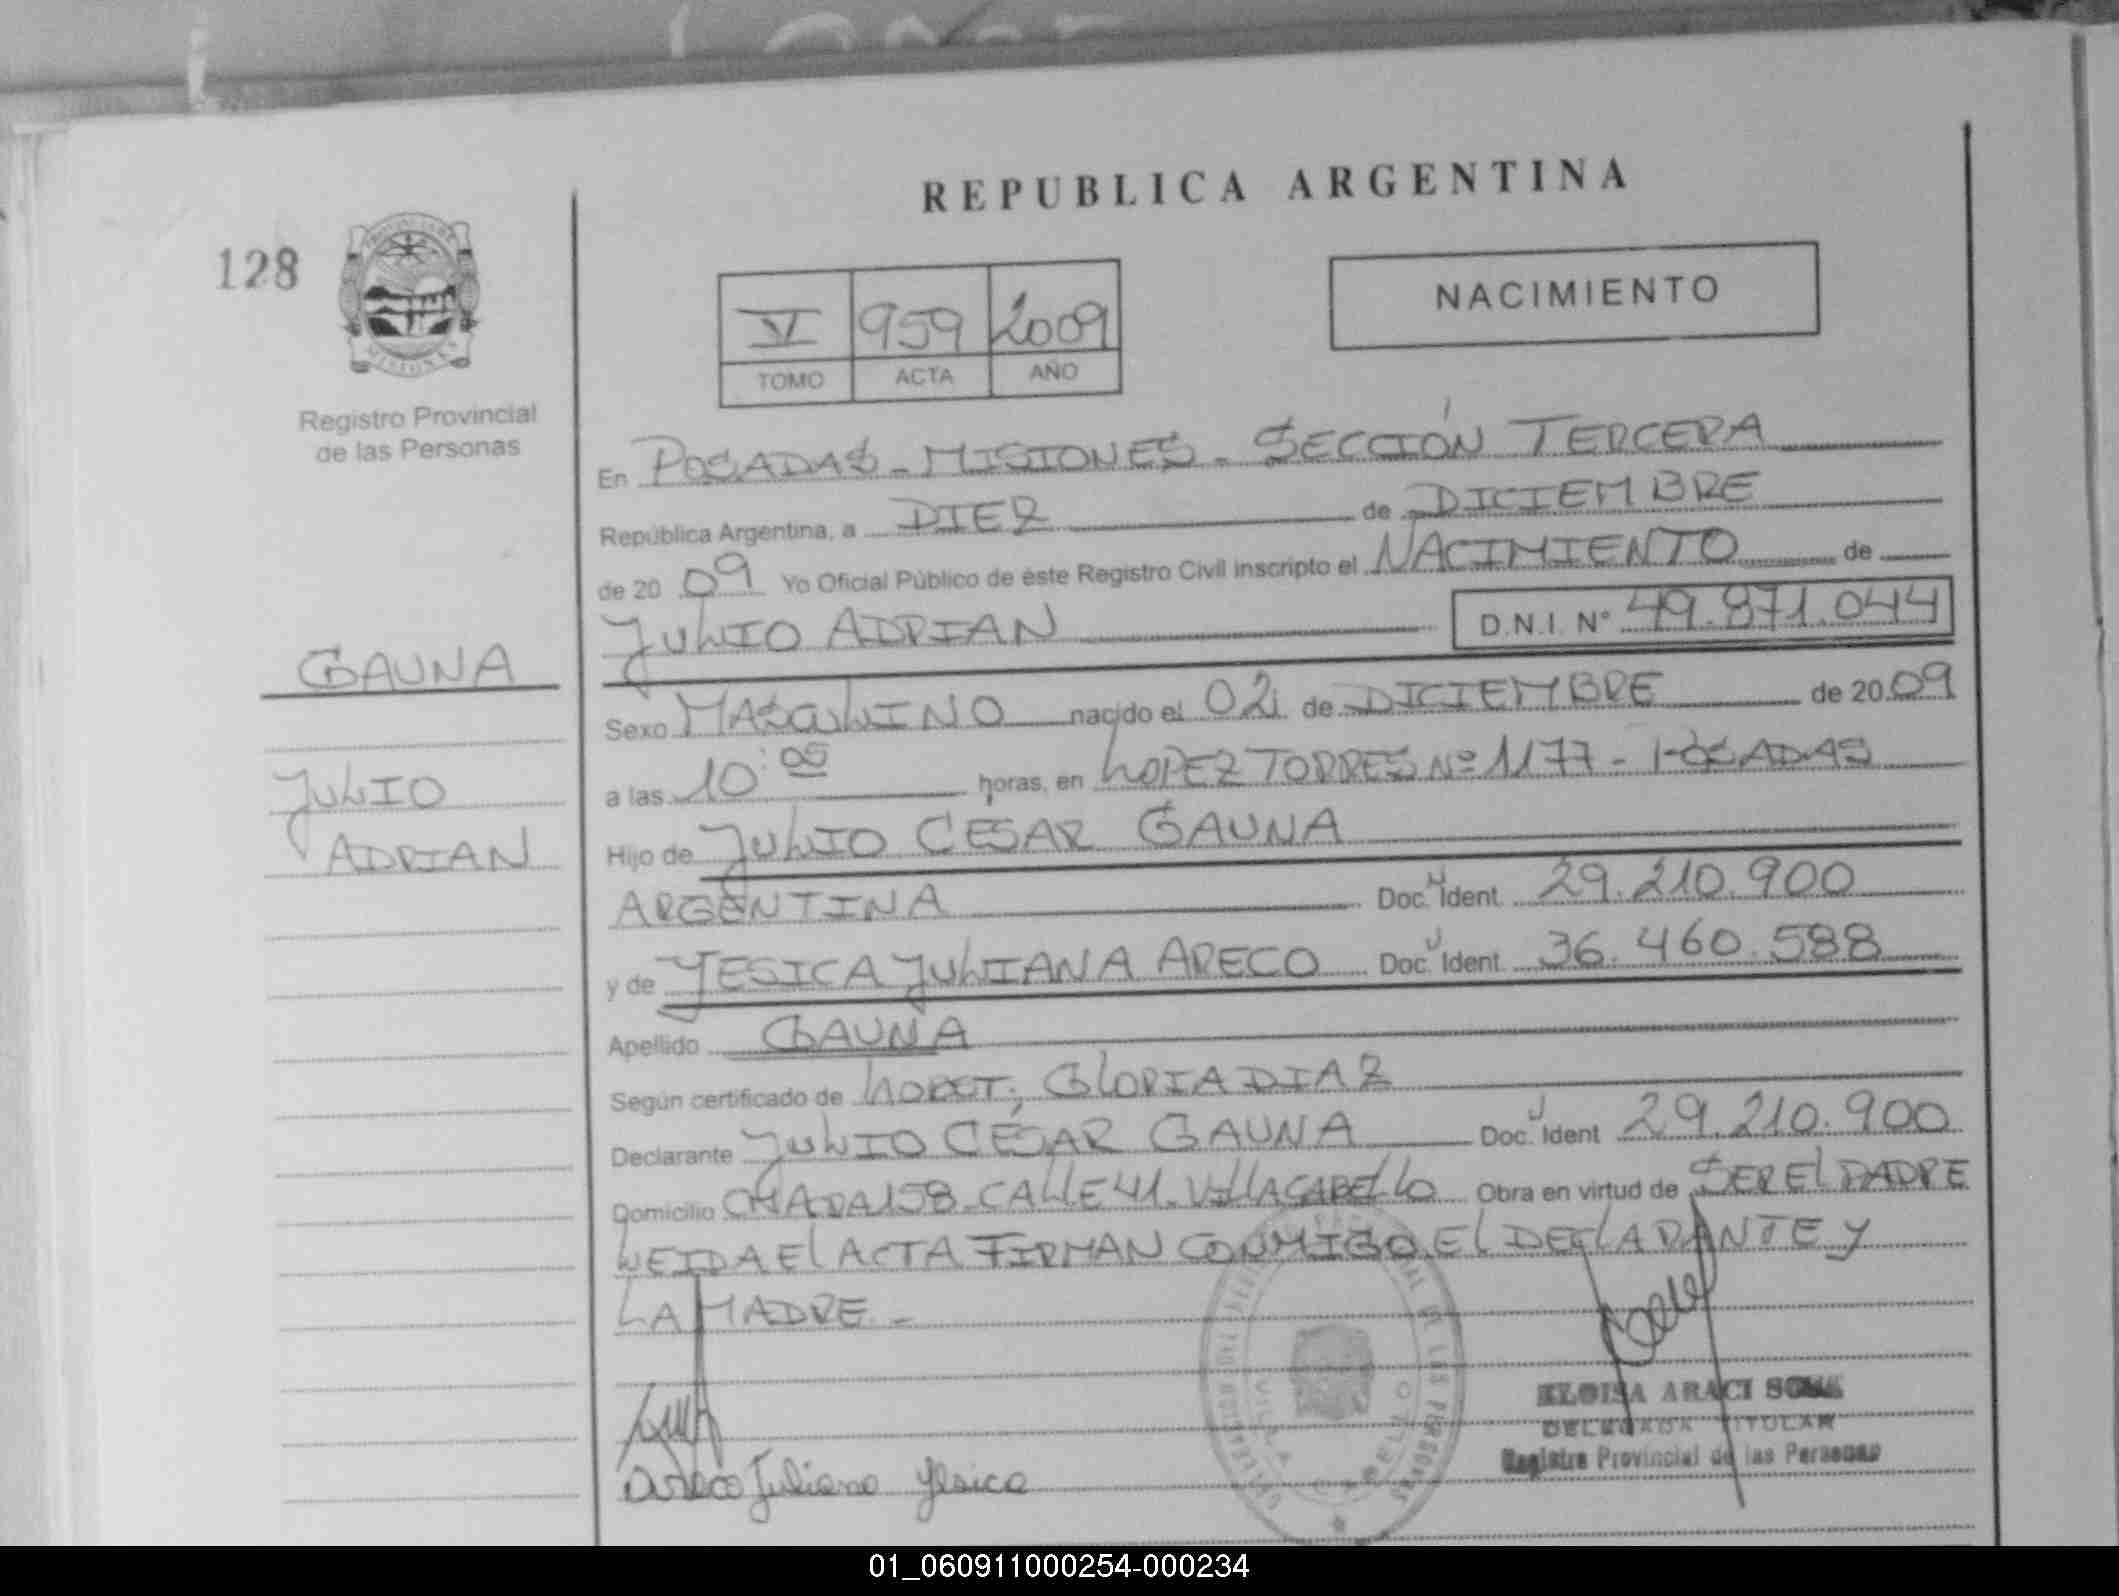 REPUBLICA ARGENTINA
128
NACIMIENTO
V 959 2009
TOMO ACTA AÑO
Registro Provincial
de las Personas
En POSADAS - MISIONES - SECCIÓN TERCERA
República Argentina, a DIEZ de DICIEMBRE
de 20 09 Yo Oficial Público de éste Registro Civil inscripto el NACIMIENTO de
JULIO ADRIAN D.N.I. Nº 49.871.044
GAUNA
JULIO
ADRIAN
Sexo MASCULINO nacido el 02 de DICIEMBRE de 20 09
a las 10:05 horas, en LOPEZ TORRES Nº 1177 - POSADAS
Hijo de JULIO CESAR GAUNA
ARGENTINA Doc. Ident 29.210.900
y de YESICA JULIANA ARECO Doc. Ident 36.460.588
Apellido GAUNA
Según certificado de LA OBST; GLORIA DIAZ
Declarante JULIO CESAR GAUNA Doc. Ident 29.210.900
Domicilio CHACRA 158 - CALLE 41 - VILLA CABELLO Obra en virtud de SER EL PADRE
LEIDA EL ACTA FIRMAN CONMIGO EL DECLARANTE Y
LA MADRE. -
Areco Juliana Yesica
ELOISA ARACI SOSA
DELEGADA TITULAR
Registro Provincial de las Personas
01_060911000254-000234